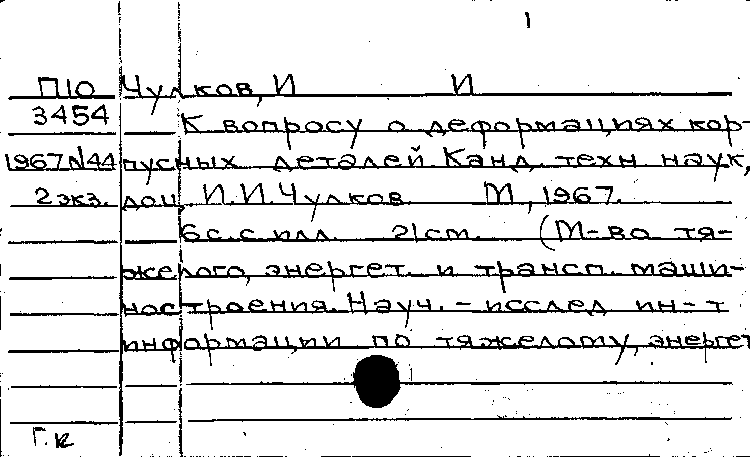 1
П10 Чулков, И И
3454 К вопросу о деформациях кор-
1967 N44 пусных деталей. Канд. техн. наук,
2 экз. доц. И.И. Чулков. М., 1967.
6 с. с илл. 21 см. (М-во тя-
желого, энергет. и трансп. маши-
ностроения. Науч.-исслед. ин-т
информации по тяжелому, энергет
Г. к